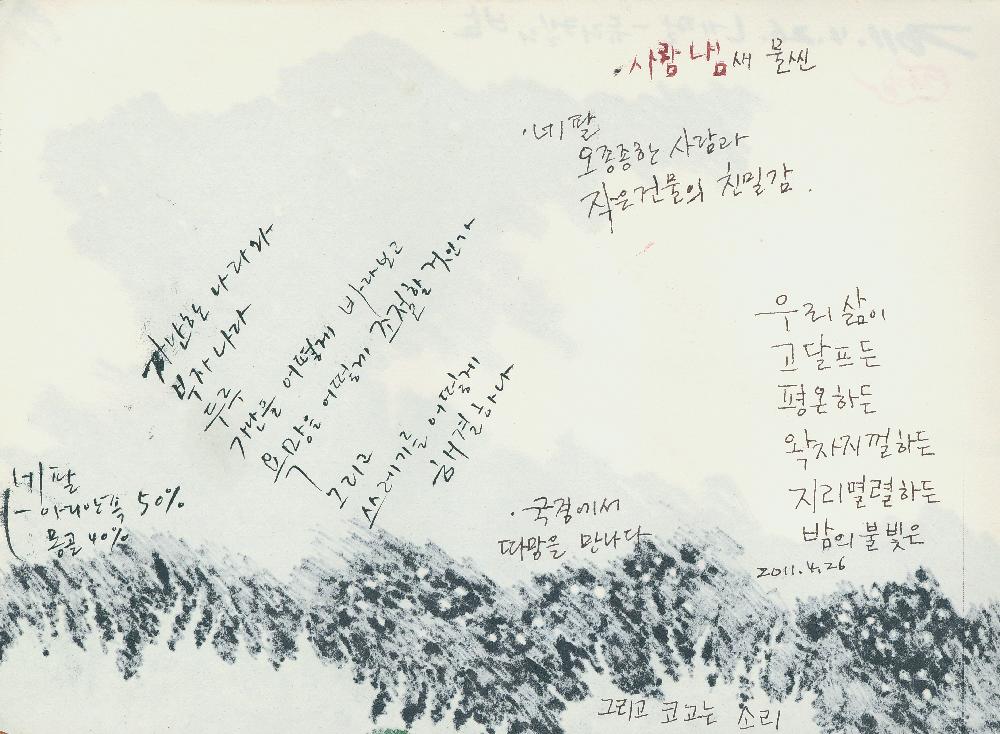 · 사람 냄새 물씬
· 네팔
오종종하는 사람과
작은 건물의 친밀감.
가난한 나라와
부자 나라
두루
가난을 어떻게 바라보고
욕망을 어떻게 조절할 것인가
그리고
쓰레기를 어떻게
해결하나
네팔
- 아리안족 50%
몽골 40%
· 국경에서
따망을 만나다
우리 삶이
고달프든
평온하든
왁자지껄하든
지리멸렬하든
밤의 불빛은
2011.4.26
그리고 코고는 소리